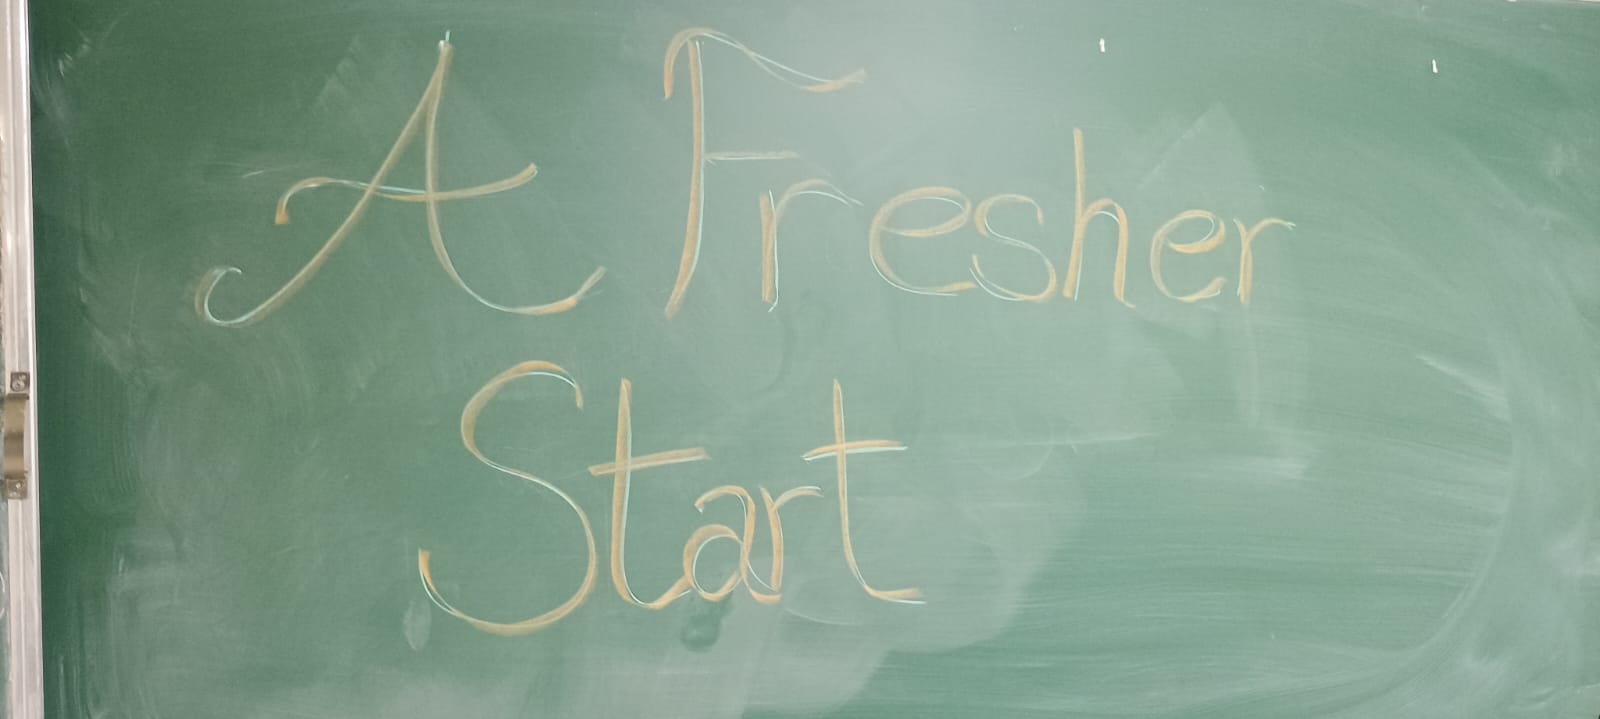 A Fresher
Start